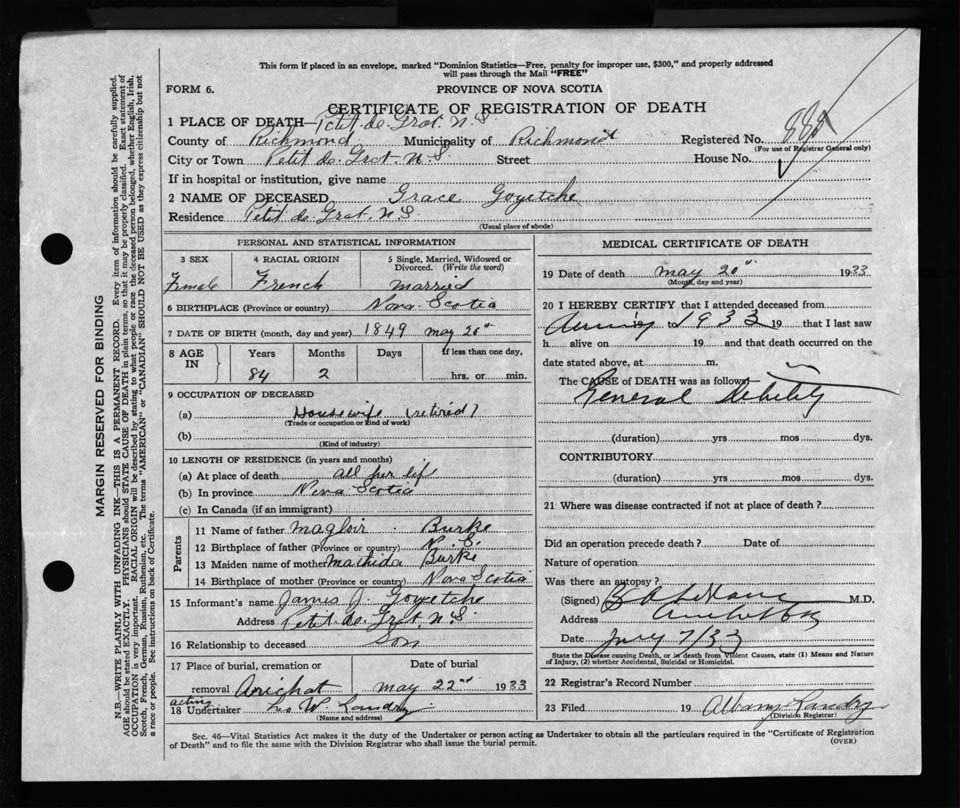 This form if placed in an envelope, marked "Dominion Statistics—Free, penalty for improper use, $300," and properly addressed
will pass through the Mail "FREE"
FORM 6.
PROVINCE OF NOVA SCOTIA
CERTIFICATE OF REGISTRATION OF DEATH
1 PLACE OF DEATH— Petit de Grat. N.S.
County of Richmond Municipality of Richmond Registered No.
(For use of Registrar General only)
City or Town Petit de Grat. N.S. Street House No.
If in hospital or institution, give name
2 NAME OF DECEASED Grace Goyetche
Residence Petit de Grat. N.S
(Usual place of abode)
PERSONAL AND STATISTICAL INFORMATION
3 SEX 4 RACIAL ORIGIN 5 Single, Married, Widowed or
Divorced. (Write the word)
Female French married
6 BIRTHPLACE (Province or country) Nova Scotia
7 DATE OF BIRTH (month, day and year) 1849 May 20th
8 AGE IN Years Months Days If less than one day,
84 2 hrs. or min.
9 OCCUPATION OF DECEASED
(a) Housewife (retired)
(Trade or occupation or kind of work)
(b)
(Kind of industry)
10 LENGTH OF RESIDENCE (in years and months)
(a) At place of death all her life
(b) In province Nova Scotia
(c) In Canada (if an immigrant)
Parents
11 Name of father Burke
12 Birthplace of father (Province or country) N.S.
13 Maiden name of mother Burke
14 Birthplace of mother (Province or country) Nova Scotia
15 Informant's name James J. Goyetche
Address Petit de Grat, N.S
16 Relationship to deceased Son
17 Place of burial, cremation or Date of burial
removal Arichat May 22nd 1933
acting
18 Undertaker W. Landry
(Name and address)
MEDICAL CERTIFICATE OF DEATH
19 Date of death May 20th 1933
(Month, day and year)
20 I HEREBY CERTIFY that I attended deceased from
19 to 1933 19 that I last saw
h alive on 19 and that death occurred on the
date stated above, at m.
The CAUSE of DEATH was as follows:
General debility
(duration) yrs mos dys.
CONTRIBUTORY
(duration) yrs mos dys.
21 Where was disease contracted if not at place of death?
Did an operation precede death? Date of
Nature of operation
Was there an autopsy?
(Signed) M.D.
Address
Date 7/33
State the Disease causing Death, or in death from Violent Causes, state (1) Means and Nature
of Injury, (2) whether Accidental, Suicidal or Homicidal.
22 Registrar's Record Number
23 Filed 19 Albany Landry
(Division Registrar)
Sec. 46—Vital Statistics Act makes it the duty of the Undertaker or person acting as Undertaker to obtain all the particulars required in the "Certificate of Registration
of Death" and to file the same with the Division Registrar who shall issue the burial permit.
(OVER)
MARGIN RESERVED FOR BINDING
N.B.—WRITE PLAINLY WITH UNFADING INK—THIS IS A PERMANENT RECORD. Every item of information should be carefully supplied.
AGE should be stated EXACTLY. PHYSICIANS should STATE CAUSE OF DEATH in plain terms, so that it may be properly classified. Exact statement of
OCCUPATION is very important. RACIAL ORIGIN will be described by stating to what people or race the deceased person belonged, whether English, Irish,
Scotch, French, German, Russian, Ruthenian, etc. The terms "AMERICAN" or "CANADIAN" SHOULD NOT BE USED as they express citizenship but not
a race or people. See instructions on back of Certificate.